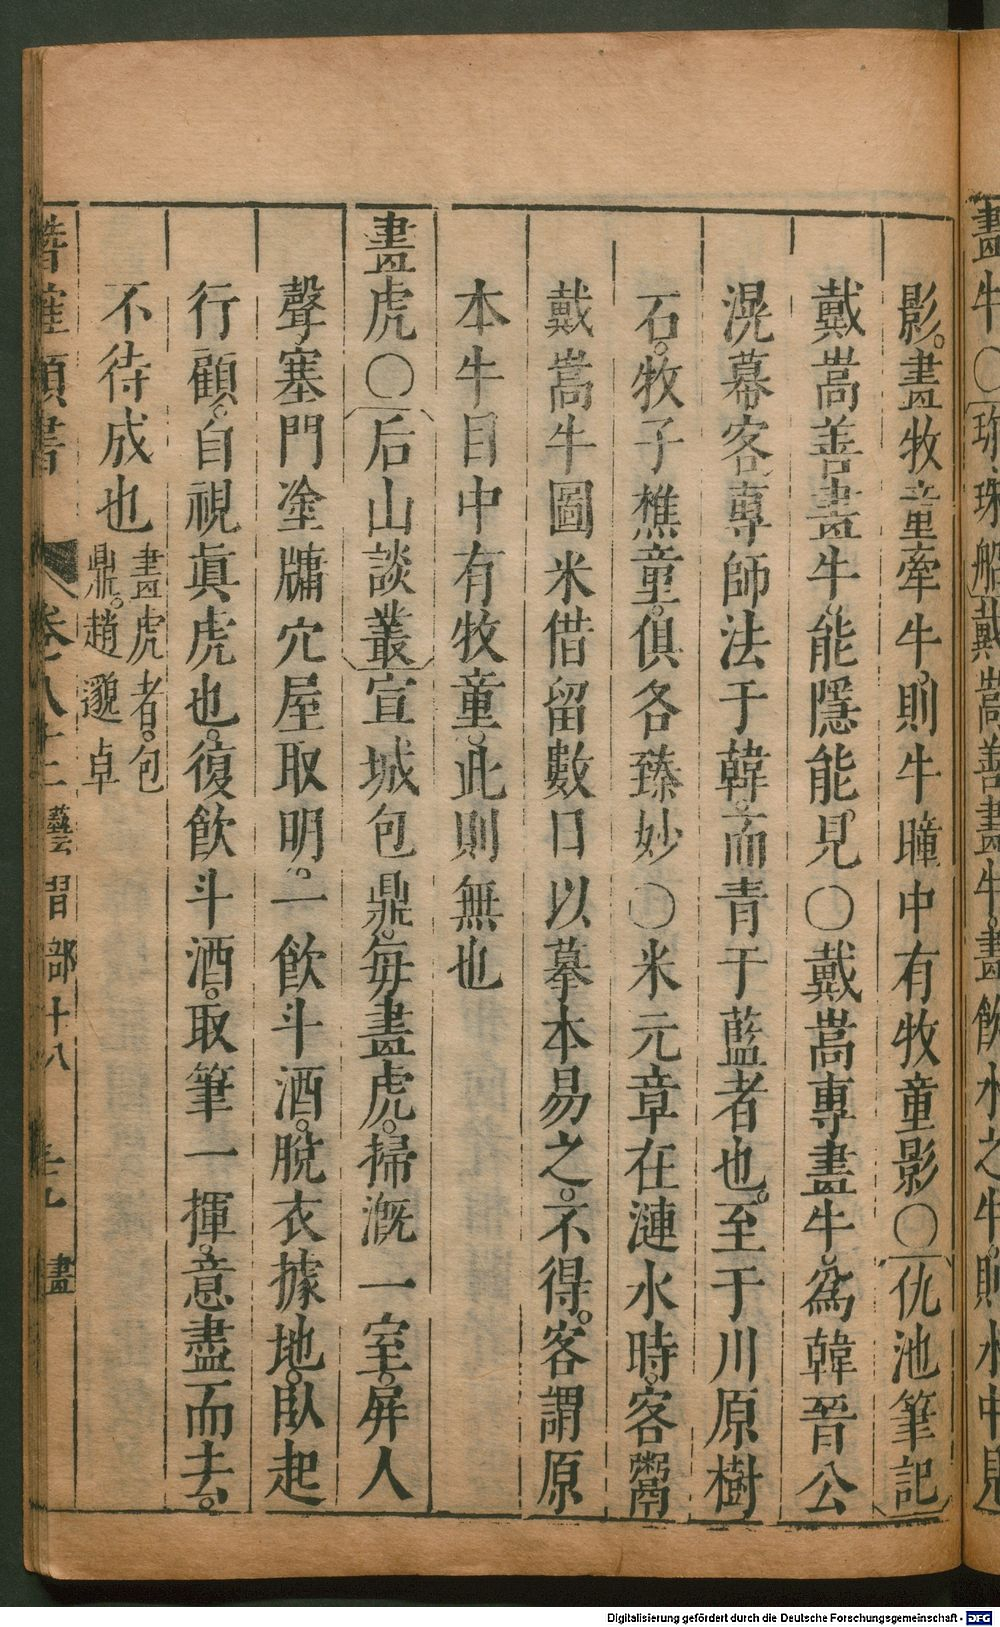 畫牛○珎珠船戴嵩善畫牛畫飲水之牛則水中見
影。畫牧童牽牛。則牛瞳中有牧童影○仇池筆記
戴嵩善畫牛。能隱能見○戴嵩專畫牛。爲韓晉公
滉幕客。專師法于韓。而青于藍者也。至于川原樹
石。牧子樵童。俱各臻妙○米元章在漣水時。客鬻
戴嵩牛圖米借留數日以摹本易之。不得。客謂原
本牛目中有牧童。此則無也
畫虎○后山談叢宣城包鼎。每畫虎。掃漑一室。屏人
聲塞門塗牖穴屋取明。一飲斗酒。脫衣據地。臥起
行顧。自視眞虎也。復飲斗酒。取筆一揮。意盡而去。
不待成也畫虎者。包
鼎。趙邈卓
類書 卷八十二 藝習部十八 畫
Digitalisierung gefördert durch die Deutsche Forschungsgemeinschaft - DFG